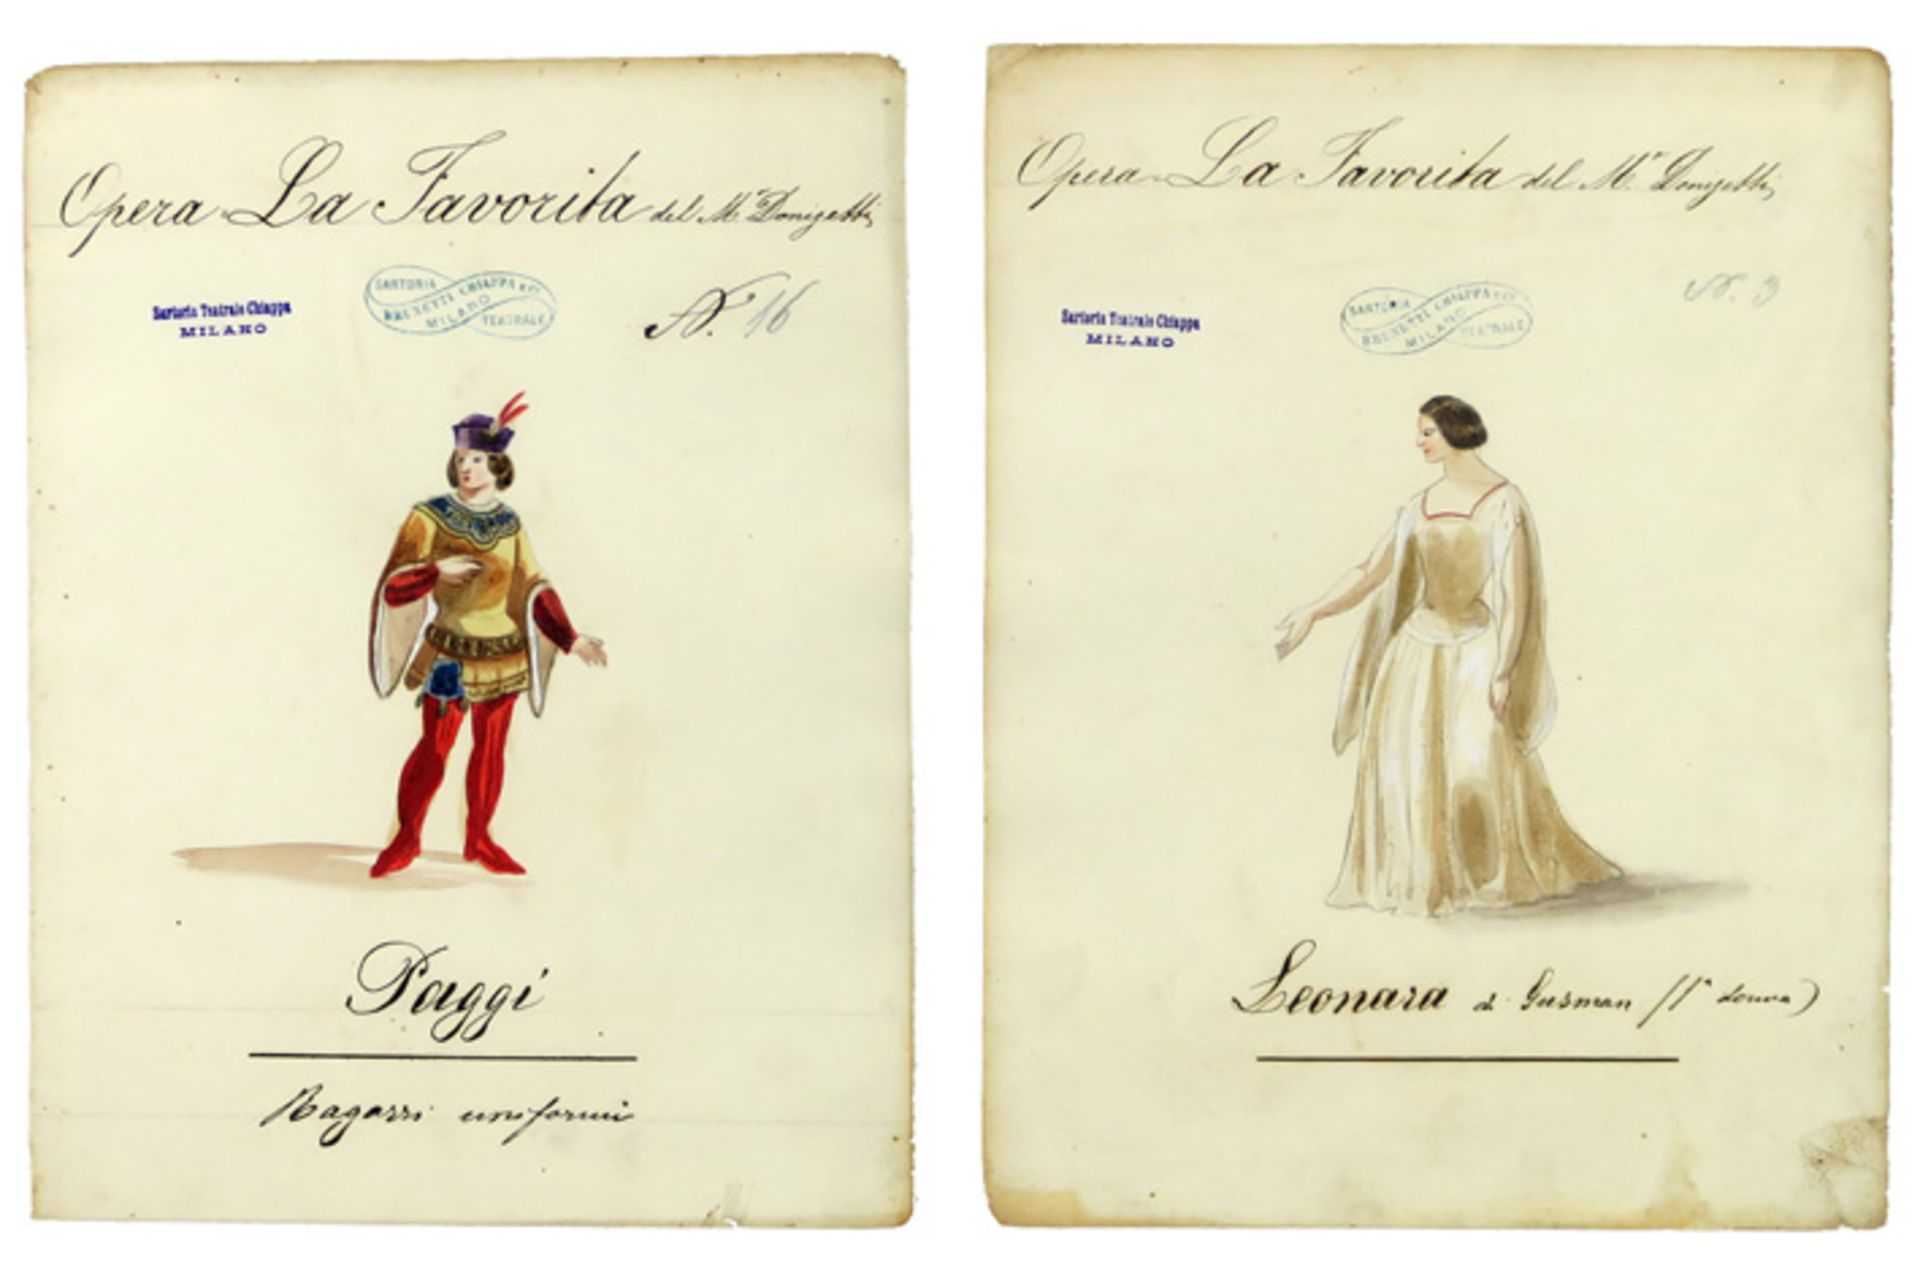 Opera La Favorita del M.º Donizetti
Sartoria Teatrale Chiappa
MILANO
SARTORIA
BRUNETTI CHIAPPA & C.
MILANO
TEATRALE
N. 16
Paggi
Ragazzi uniformi
Opera La Favorita del M.º Donizetti
Sartoria Teatrale Chiappa
MILANO
SARTORIA
BRUNETTI CHIAPPA & C.
MILANO
TEATRALE
N. 3
Leonara di Gusman (1ª donna)